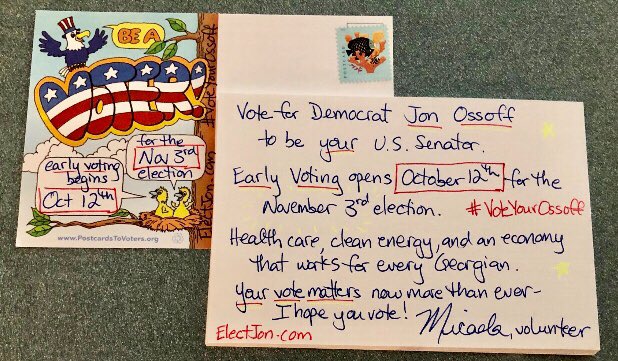 BE A
VOTER!
#VoteYourOssoff
for the
Nov 3rd
election
early voting
begins
Oct 12th
ElectJon.com
www.PostcardsToVoters.org
Vote for Democrat Jon Ossoff
to be your U.S. Senator.
Early Voting opens October 12th for the
November 3rd election. #VoteYourOssoff
Health care, clean energy, and an economy
that works for every Georgian.
Your vote matters now more than ever-
I hope you vote! Micaela, volunteer
ElectJon.com